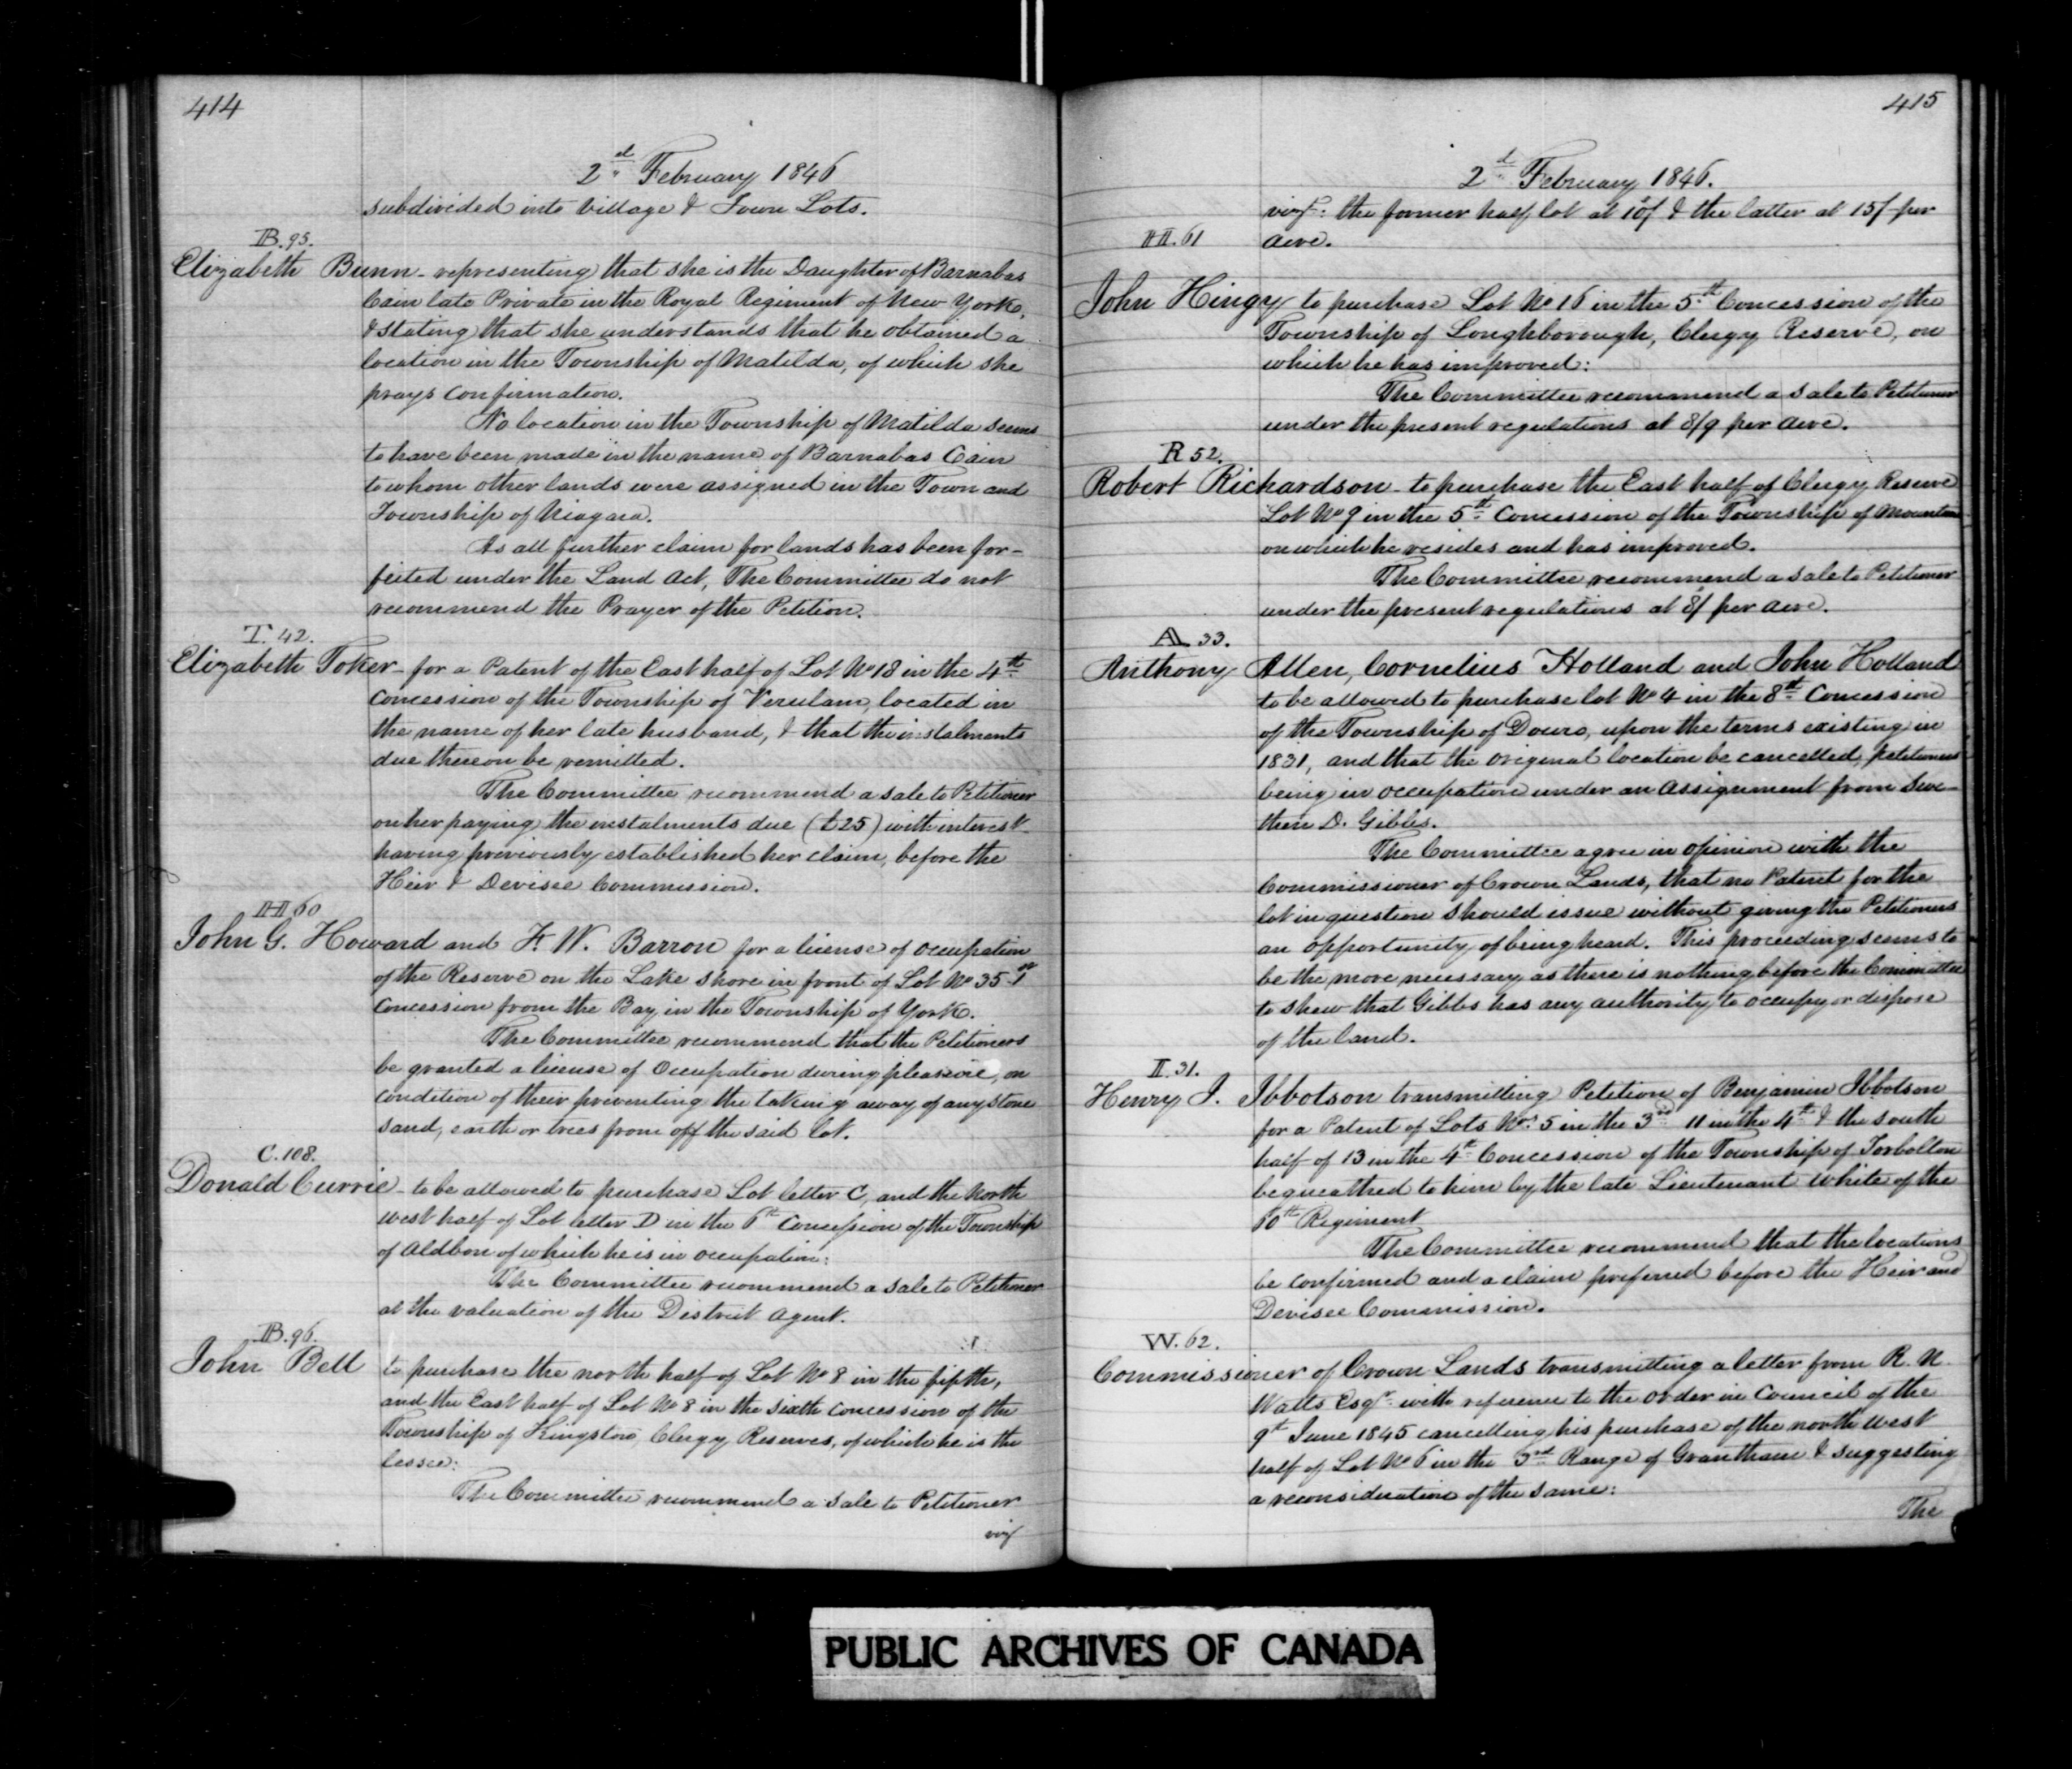 414
2d February 1846
subdivided into Village & Town Lots.
B. 95.
Elizabeth Bunn - representing that she is the Daughter of Barnabas
Cain late Private in the Royal Regiment of New York,
& stating that she understands that he obtained a
location in the Township of Matilda, of which she
prays confirmation.
No location in the Township of Matilda seems
to have been made in the name of Barnabas Cain
to whom other lands were assigned in the Town and
Township of Niagara.
As all further claim for lands has been for-
feited under the Land Act, The Committee do not
recommend the Prayer of the Petition.
T. 42.
Elizabeth Toker - for a Patent of the East half of Lot No 18 in the 4th
Concession of the Township of Verulam, located in
the name of her late husband, & that the instalments
due thereon be remitted.
The Committee recommend a sale to Petitioner
on her paying the instalments due (£25) with interest
having previously established her claim, before the
Heir & Devisee Commission.
H 60
John G. Howard and F. W. Barron for a license of occupation
of the Reserve on the Lake shore in front of Lot No 35 1st
Concession from the Bay in the Township of York.
The Committee recommend that the Petitioners
be granted a license of Occupation during pleasure, on
condition of their preventing the taking away of any stone
sand, earth or trees from off the said lot.
C. 108.
Donald Currie - to be allowed to purchase Lot letter C, and the North
west half of Lot letter D in the 6th Concession of the Township
of Aldbon of which he is in occupation:
The Committee recommend a sale to Petitioner
at the valuation of the District Agent.
B. 96.
John Bell to purchase the north half of Lot No 8 in the fifth,
and the East half of Lot No 8 in the sixth concession of the
Township of Kingston, Clergy Reserves, of which he is the
lessee:
The Committee recommend a sale to Petitioner
viz
415
2d February 1846.
vizt: the former half lot at 10/ & the latter at 15/ per
acre.
H. 61
John Hingy to purchase Lot No 16 in the 5th Concession of the
Township of Loughborough, Clergy Reserve, on
which he has improved:
The Committee recommend a sale to Petitioner
under the present regulations at 8/9 per acre.
R 52.
Robert Richardson - to purchase the East half of Clergy Reserve
Lot No 9 in the 5th Concession of the Township of Mountain
on which he resides and has improved.
The Committee recommend a sale to Petitioner
under the present regulations at 8/ per acre.
A 33.
Anthony Allen, Cornelius Holland and John Holland
to be allowed to purchase lot No 4 in the 8th Concession
of the Township of Douro, upon the terms existing in
1831, and that the original location be cancelled, petitioners
being in occupation under an assignment from Lew-
then D. Gibbs.
The Committee agree in opinion with the
Commissioner of Crown Lands, that no Patent for the
lot in question should issue without giving the Petitioners
an opportunity of being heard. This proceeding seems to
be the more necessary as there is nothing before the Committee
to shew that Gibbs has any authority to occupy or dispose
of the land.
I. 31.
Henry J. Ibbotson transmitting Petition of Benjamin Ibbotson
for a Patent of Lots Nos 5 in the 3rd 11 in the 4th & the south
half of 13 in the 4th Concession of the Township of Torbolton
bequeathed to him by the late Lieutenant White of the
60th Regiment
The Committee recommend that the locations
be confirmed and a claim preferred before the Heir and
Devisee Commission.
W. 62.
Commissioner of Crown Lands transmitting a letter from R. N.
Watts Esqr. with reference to the order in Council of the
9th June 1845 cancelling his purchase of the north west
half of Lot No 6 in the 3rd Range of Grantham & suggesting
a reconsideration of the same:
The
PUBLIC ARCHIVES OF CANADA